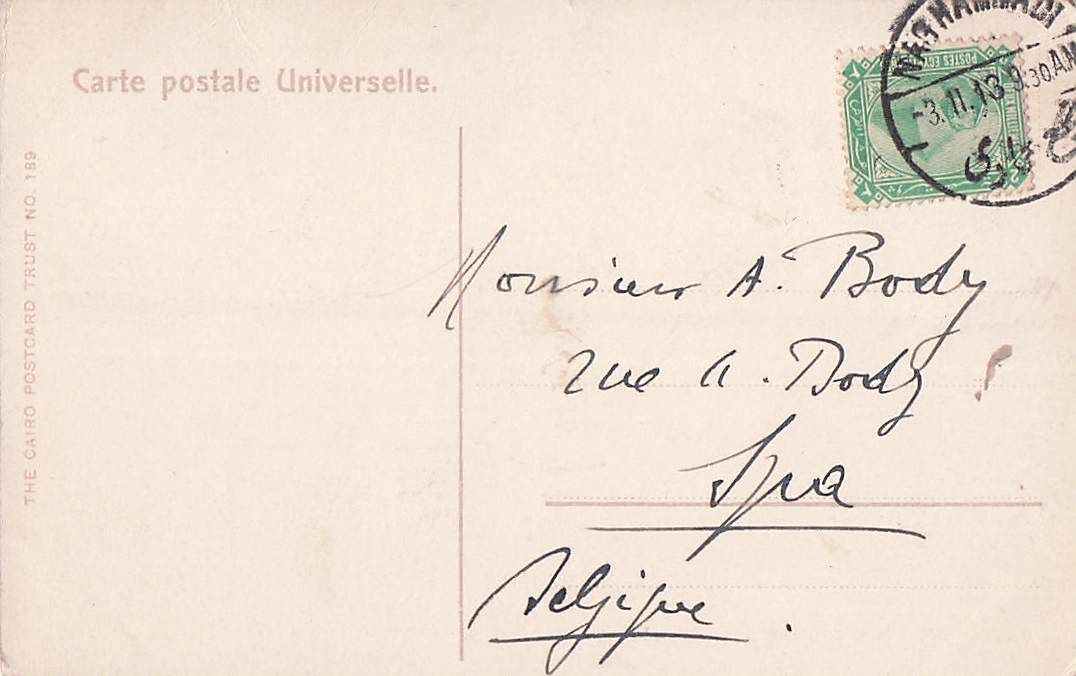 Carte postale Universelle.
THE CAIRO POSTCARD TRUST NO. 189
NAG HAMADI
-3.II.13 9.30AM
POSTES EGY
Monsieur A. Body
rue A. Body
Spa
Belgique